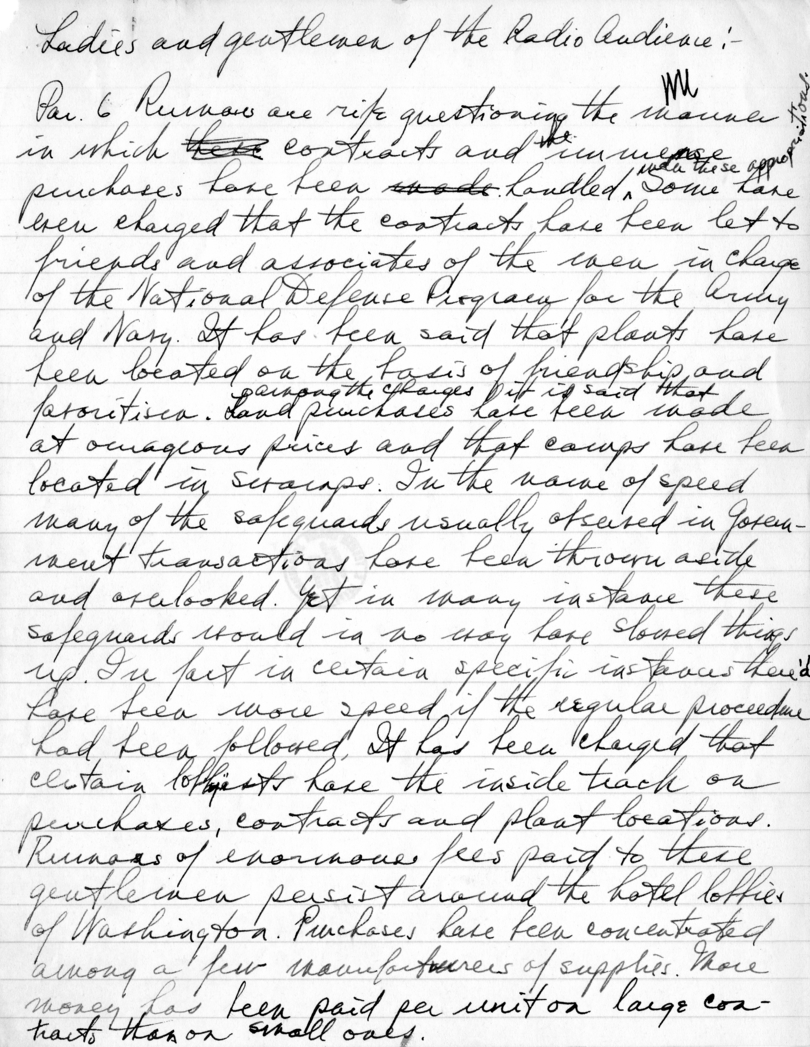 Ladies and gentlemen of the Radio Audience:-
Par. 6 Rumors are rife questioning the manner
in which these contracts and the immense
purchases have been made handled, under these appropriations. Some have
even charged that the contracts have been let to
friends and associates of the men in charge
of the National Defense Program for the Army
and Navy. It has been said that plants have
been located on the basis of friendship and
favoritism. among the charges it is said that Land purchases have been made
at outrageous prices and that camps have been
located in swamps. In the name of speed
many of the safeguards usually observed in Govern-
ment transactions have been thrown aside
and overlooked. Yet in many instance these
safeguards would in no way have slowed things
up. In fact in certain specific instances there'd
have been more speed if the regular proceedure
had been followed. It has been charged that
certain lobbyists have the inside track on
purchases, contracts and plant locations.
Rumors of enormous fees paid to these
gentlemen persist around the hotel lobbies
of Washington. Purchases have been concentrated
among a few manufacturers of supplies. More
money has been paid per unit on large con-
tracts than on small ones.